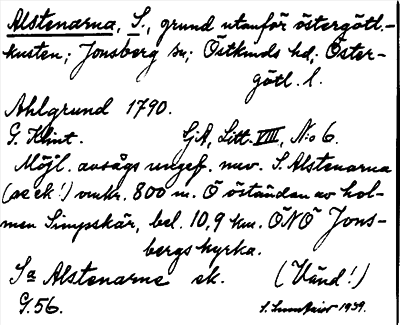 Alstenarna, S., grund utanför östergötl.-
kusten; Jonsberg sn; Östkinds hd; Öster-
götl. l.
Ahlgrund 1790.
G. Klint. SjA, Litt. VIII, N:o 6.
Möjl. avsågs ungef. nuv. S. Alstenarna
(se ek!) omkr. 800 m. Ö öständen av hol-
men Simpskär, bel. 10,9 km. ÖNÖ Jons-
bergs kyrka.
Sa Alstenarne ek. (Vänd!)
G. 56. 1939.